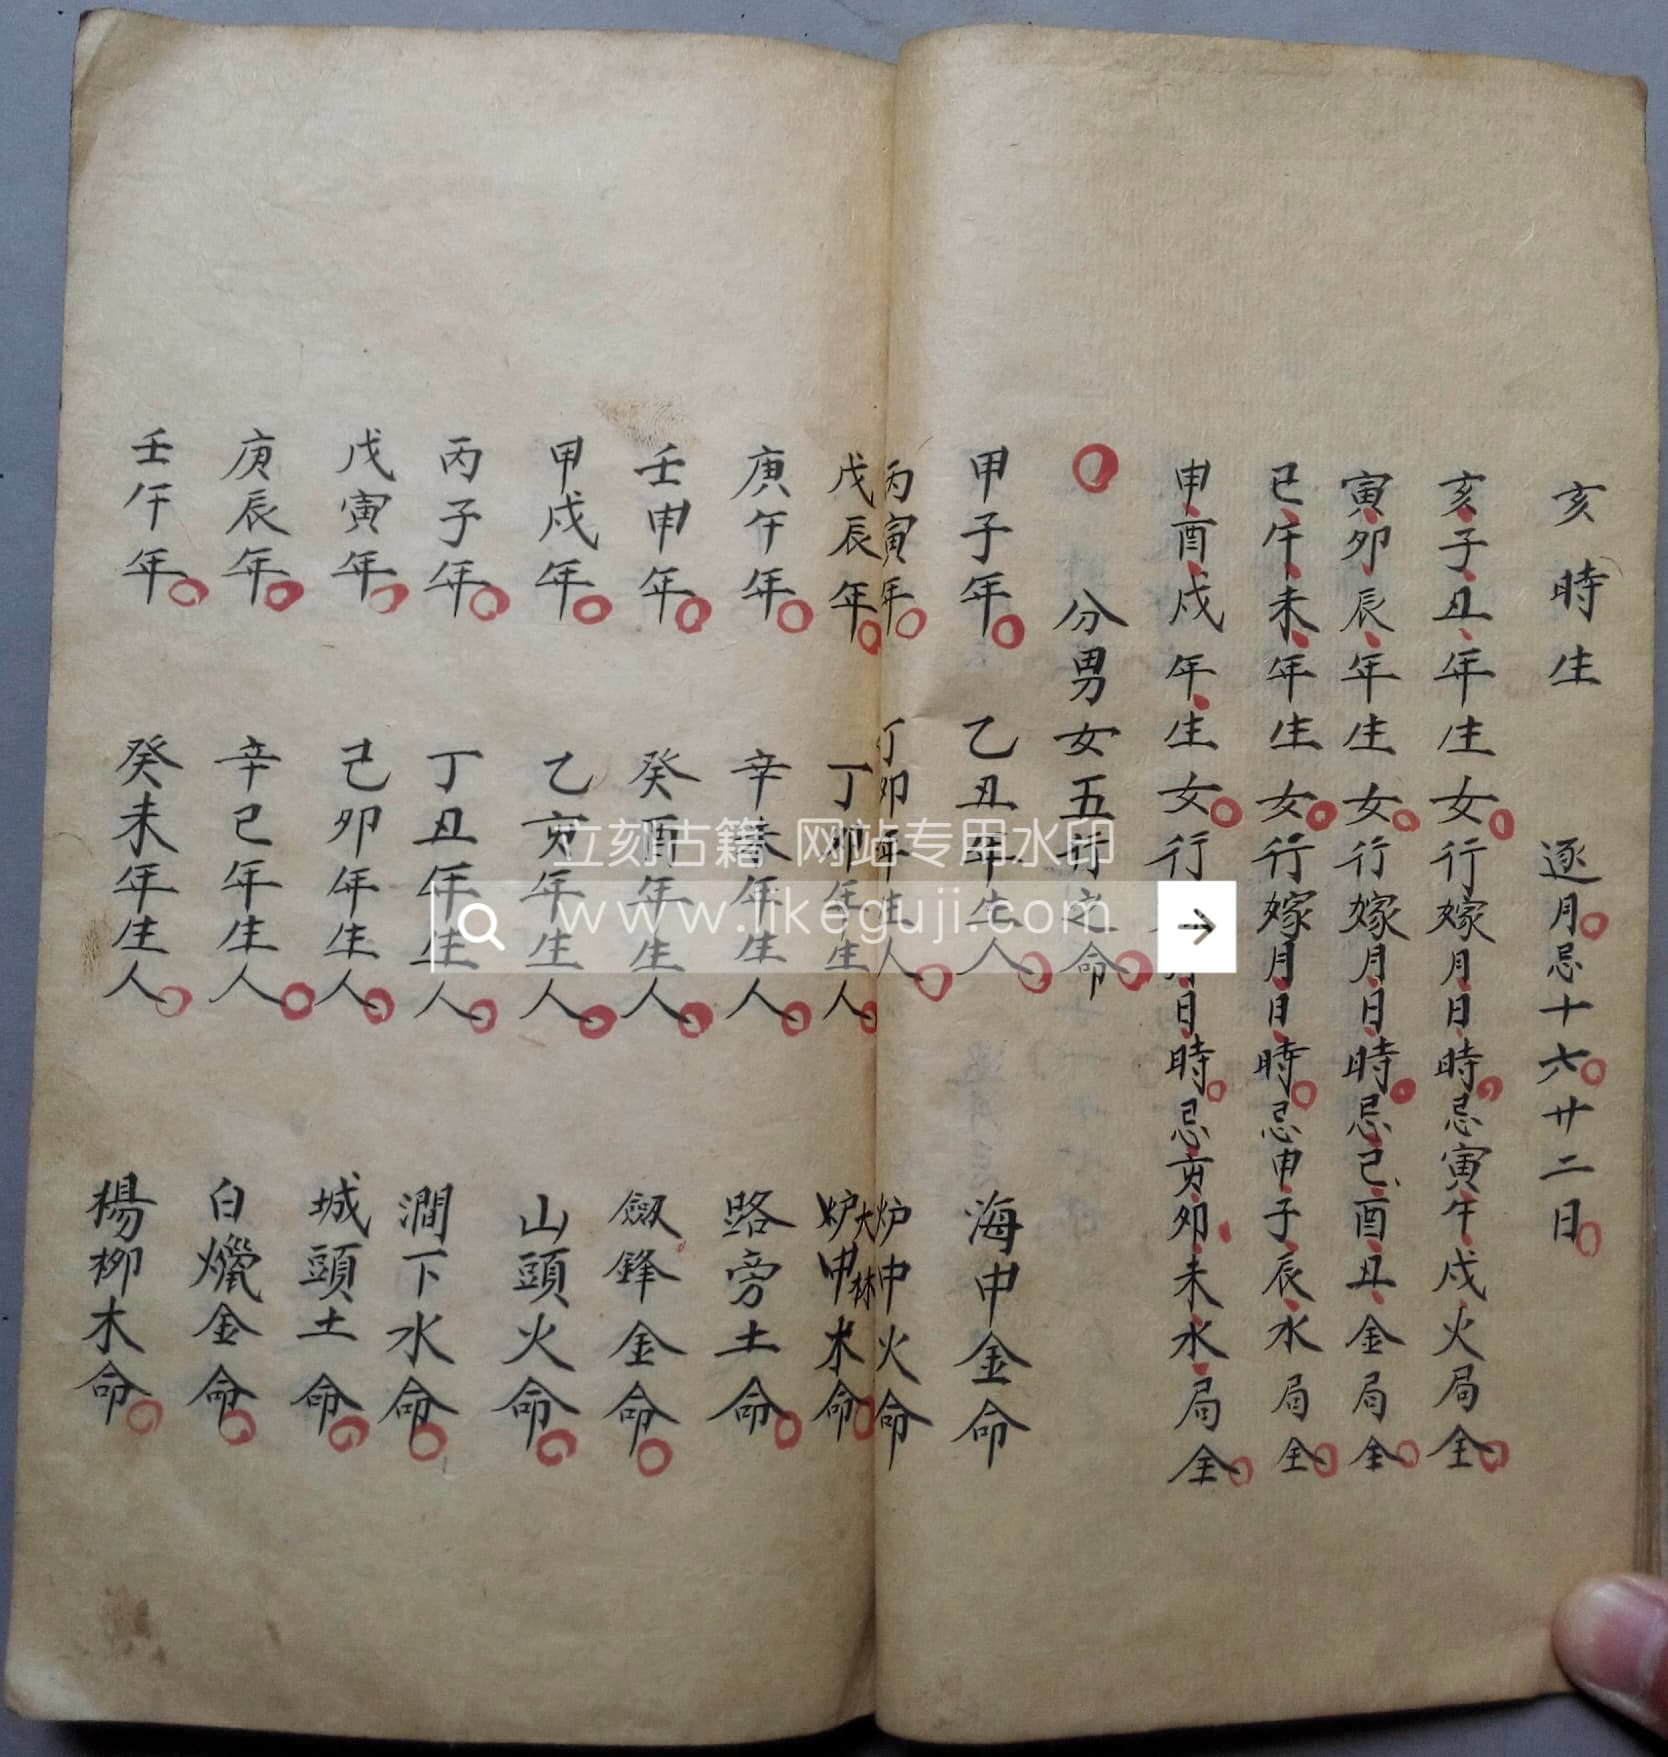 亥時生 逐月忌十六廿二日
亥子丑年生女行嫁月日時忌寅午戌火局全
寅卯辰年生女行嫁月日時忌巳酉丑金局全
巳午未年生女行嫁月日時忌申子辰水局全
申酉戌年生女行月日時忌亥卯未水局全
分男女五行之命
甲子年 乙丑年生人 海中金命
丙寅年 丁卯年生人 炉中火命
戊辰年 丁卯年生人 大林 炉中木命
庚午年 辛未年生人 路旁土命
壬申年 癸酉年生人 劍鋒金命
甲戌年 乙亥年生人 山頭火命
丙子年 丁丑年生人 澗下水命
戊寅年 己卯年生人 城頭土命
庚辰年 辛巳年生人 白蠟金命
壬午年 癸未年生人 楊柳木命
立刻古籍 网站专用水印
www.likeguji.com